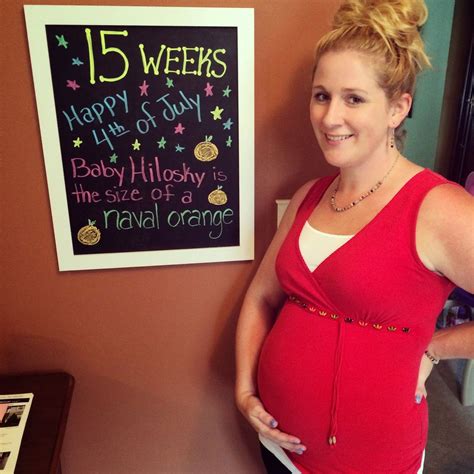 15 WEEKS
Happy
4th of July
Baby Hilosky is
the size of a
naval orange